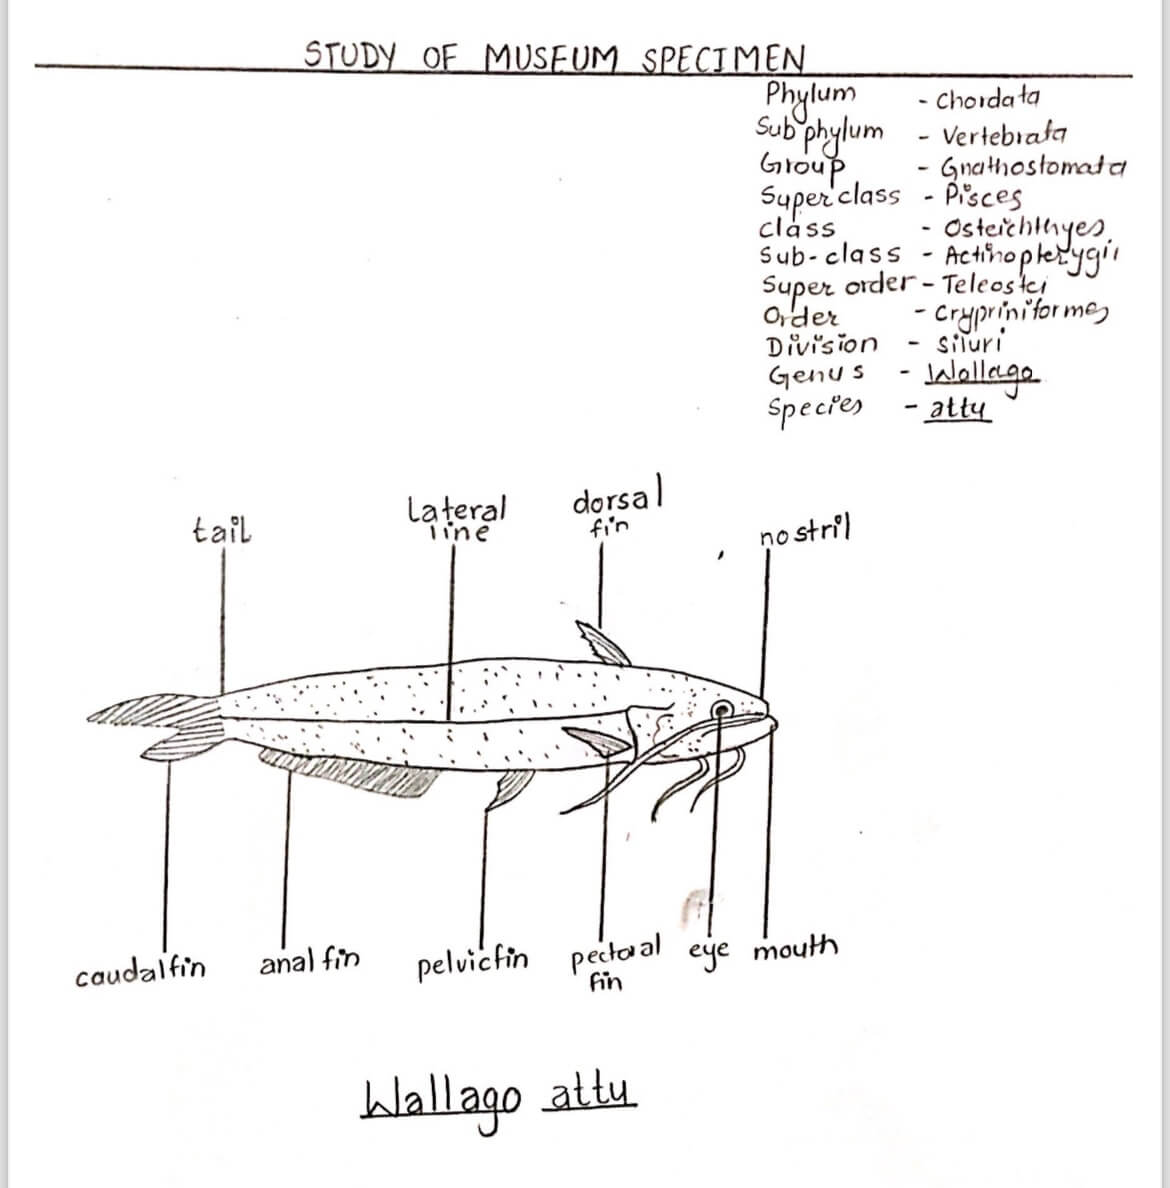 STUDY OF MUSEUM SPECIMEN
Phylum - Chordata
Sub phylum - Vertebrata
Group - Gnathostomata
Super class - Pisces
class - Osteichthyes.
Sub-class - Actinopterygii
Super order - Teleostei
Order - Crypriniformes
Division - Siluri
Genus - Wallago
Species - attu
tail
Lateral
line
dorsal
fin
nostril
caudal fin
anal fin
pelvic fin
pectoral
fin
eye
mouth
Wallago attu